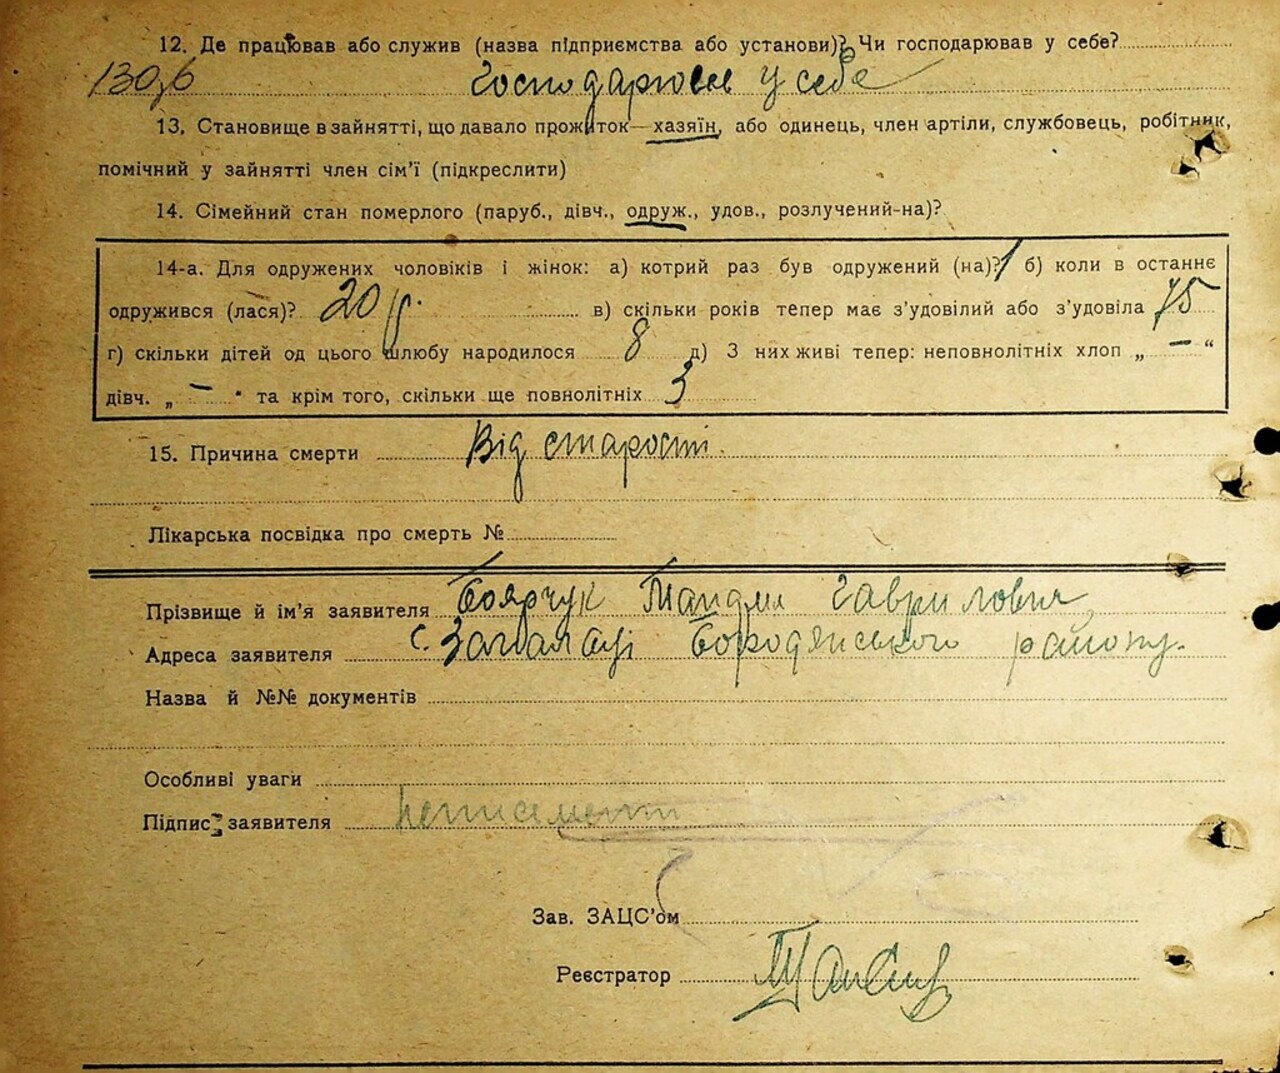 12. Де працював або служив (назва підприємства або установи)? Чи господарював у себе?
130,6 Господарював у себе
13. Становище в зайнятті, що давало прожиток—хазяїн, або одинець, член артіли, службовець, робітник,
помічний у зайнятті член сім’ї (підкреслити)
14. Сімейний стан померлого (паруб., дівч., одруж., удов., розлучений-на)?
14-а. Для одружених чоловіків і жінок: а) котрий раз був одружений (на)? 1 б) коли в останнє
одружився (лася)? 20 р. в) скільки років тепер має з’удовілий або з’удовіла 75
г) скільки дітей од цього шлюбу народилося 8 д) З них живі тепер: неповнолітніх хлоп „ — “
дівч. „ — “ та крім того, скільки ще повнолітніх 3
15. Причина смерти Від старості.
Лікарська посвідка про смерть №
Прізвище й ім’я заявителя Боярчук Гавриловна
Адреса заявителя с. Загальці Бородянського району.
Назва й №№ документів
Особливі уваги
Підпис заявителя неписьменн
Зав. ЗАЦС’ом
Реєстратор